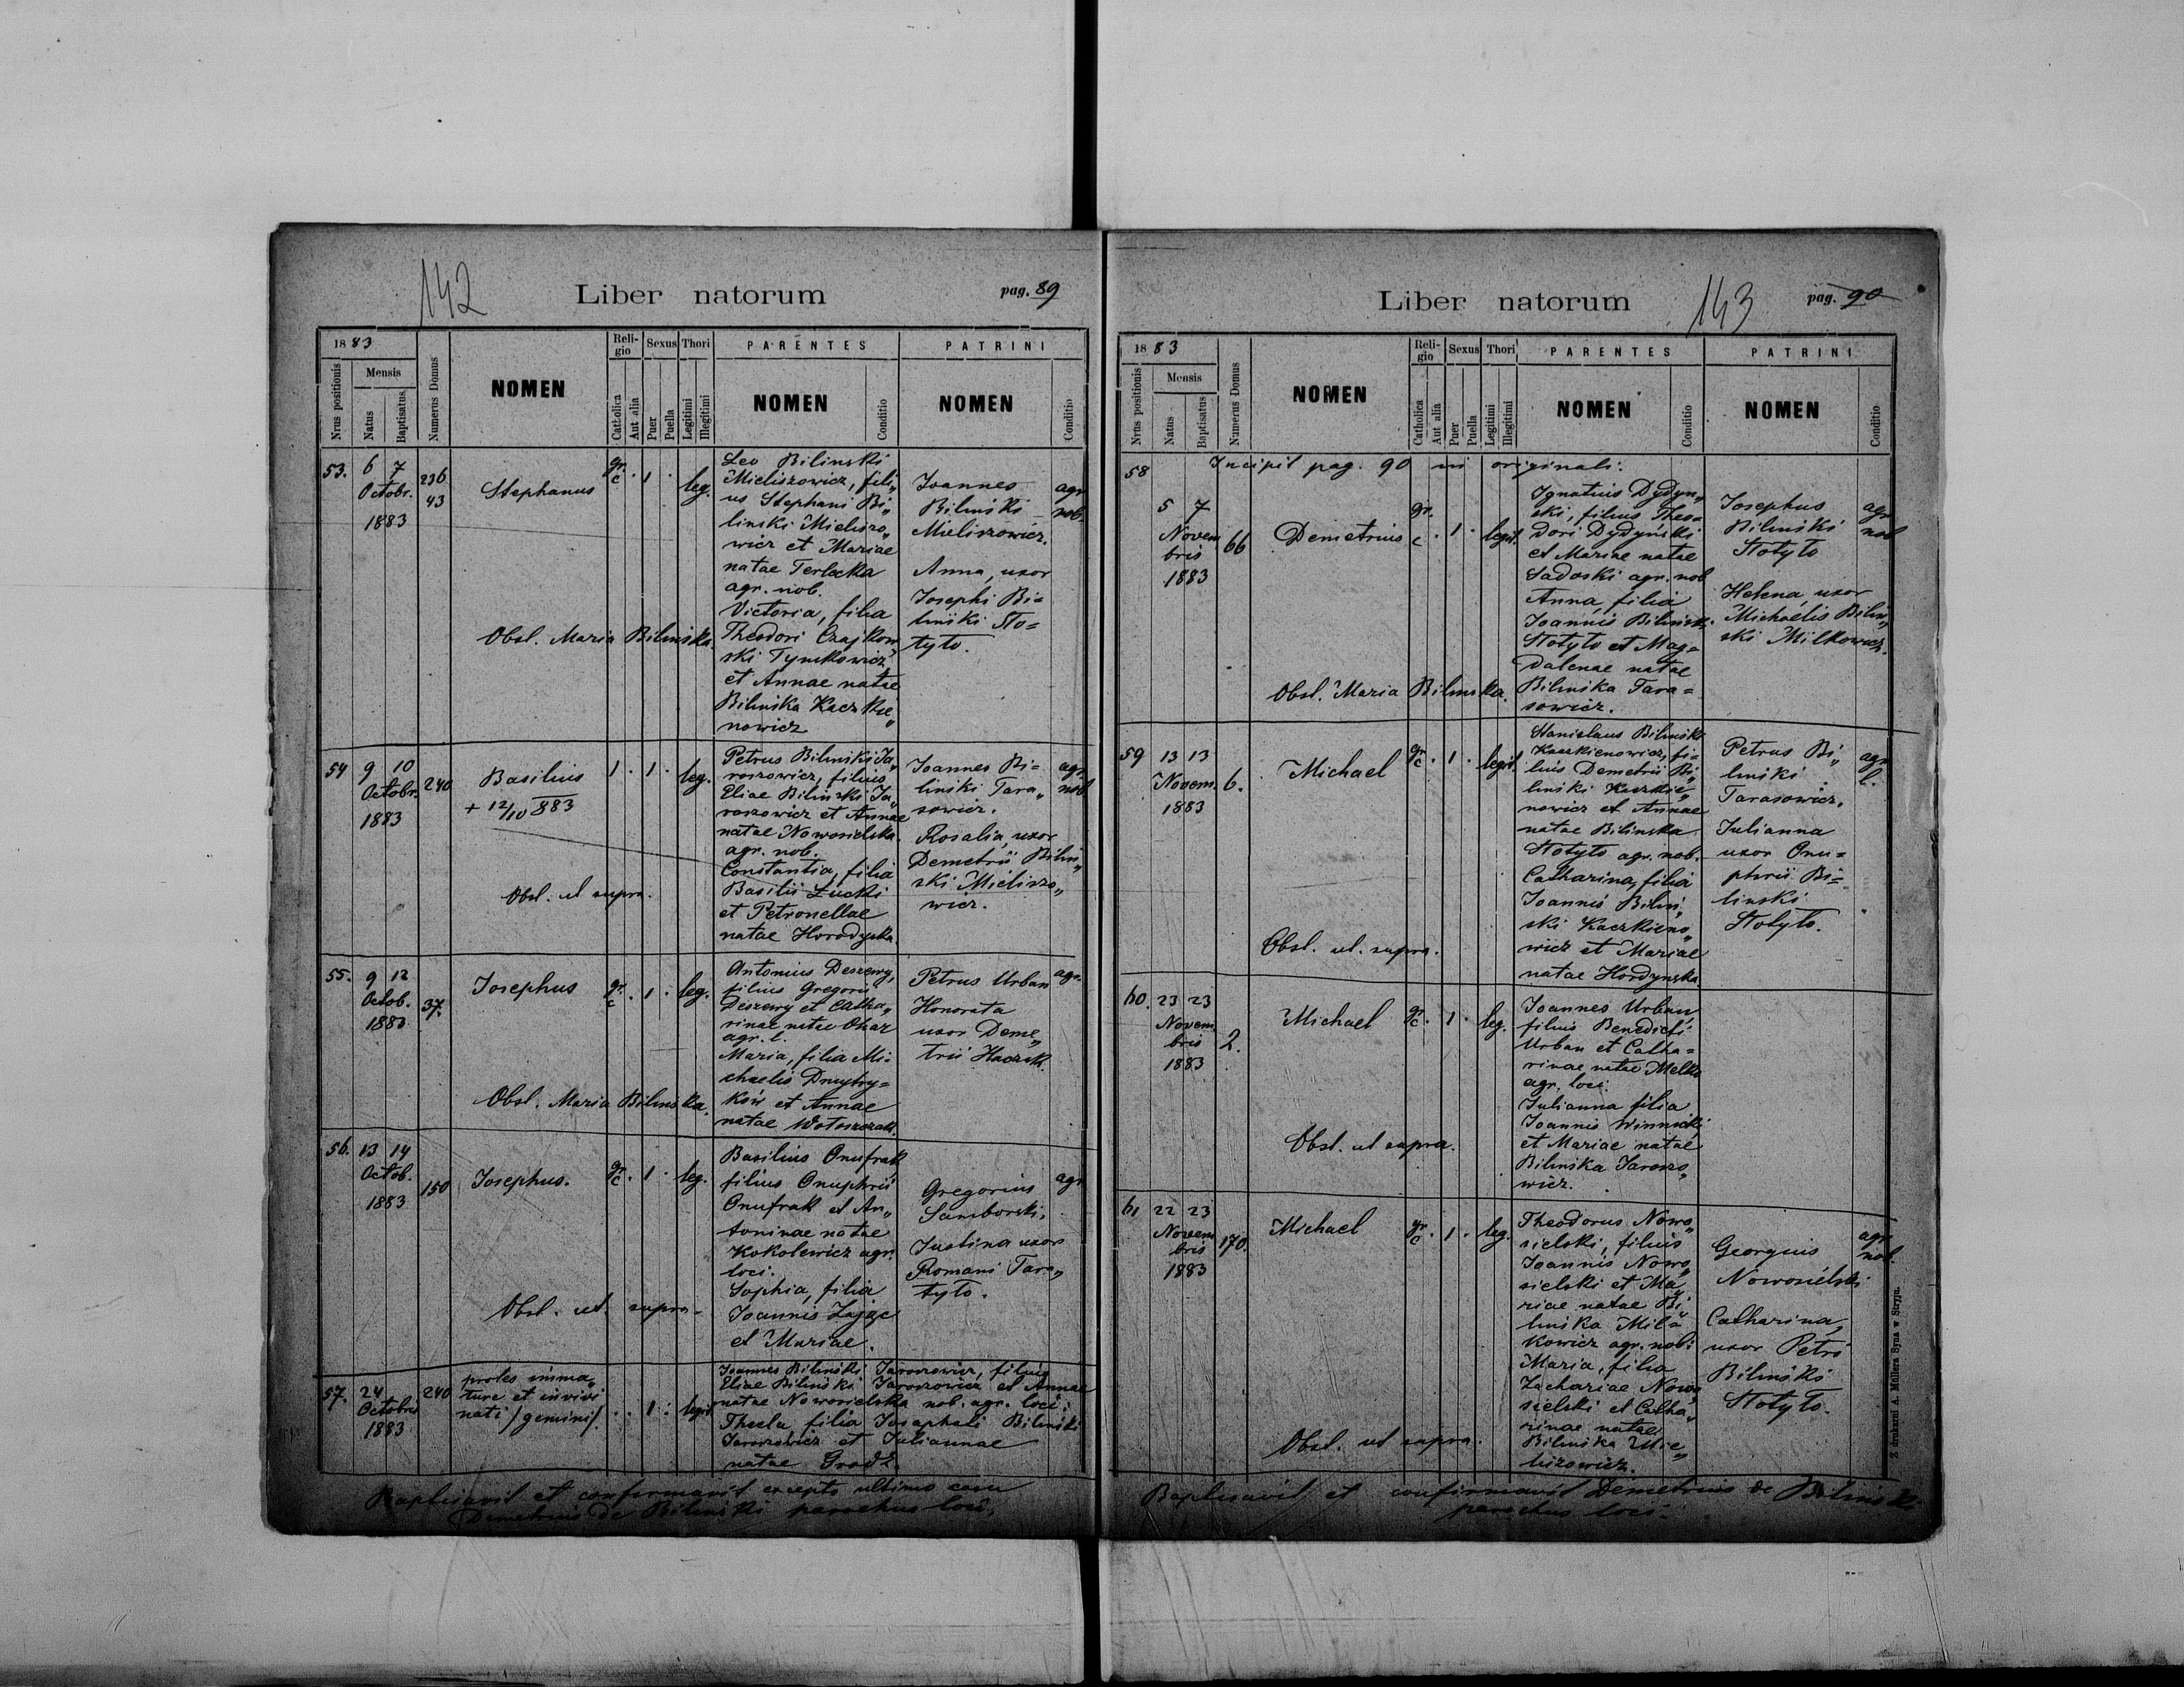 142
Liber natorum
pag. 89
1883
Nrus positionis
Mensis
Natus
Baptisatus
Numerus Domus
NOMEN
Reli-
gio
Catholica
Aut alia
Sexus
Puer
Puella
Thori
Legitimi
Illegitimi
PARENTES
NOMEN
Conditio
PATRINI
NOMEN
Conditio
53.
6 7
Octobr.
1883
236
43
Stephanus
gr.
c
. 1 .
leg.
Leo Bilinski
Mieliszowicz, fili„
us Stephani Bi„
linski Mieliszo„
wicz et Mariae
natae Terlecka
agr. nob.
Victoria, filia
Theodori Czajkow
ski Tymkowicz
et Annae natae
Bilinska Kaczkie„
nowicz
Joannes
Biliński
Mieliszowicz.
Anna, uxor
Josephi Bi=
liński Sto=
tyło.
agr.
nob.
Obst. Maria Bilinska.
54
9 10
Octobr.
1883
240
Basilius
+ 12/10 883
1 . 1 .
leg.
Petrus Bilinski Ja„
roszowicz, filius
Eliae Biliński Ja„
roszowicz et Annae
natae Nowosielska.
agr. nob.
Constantia, filia
Basilii Łucki
et Petronellae
natae Horodyska.
Joannes Bi=
linski Tara„
sowicz.
Rosalia, uxor
Demetrii Bilin„
ski Mieliszo„
wicz.
agr.
nob
Obst. ut supra.
55.
9 12
Octob.
1883
37.
Josephus
gr.
c
. 1 .
leg.
Antonius Deszewy,
filius Gregorii
Deszewy et Catha„
rinae natae
agr. l.
Maria, filia Mi=
chaelis Dmytry=
ków et Annae
natae Wołoszczak.
Petrus Urban
Honorata
uxor Deme„
trii
agr.
Obst. Maria Bilinska.
56.
13 14
Octob.
1883
150
Josephus.
gr.
c
. 1 .
leg.
Basilius Onufrak
filius Onuphrii
Onufrak et An„
toninae natae
Kokolewicz agr.
loci.
Sophia, filia
Joannis Zając
et Mariae.
Gregorius
Samborski,
Justina uxor
Romani Tara„
tyło.
agr
Obst. ut. supra.
57.
24
Octobris
1883
240
proles imma„
ture et invivi
nati /gemini/.
. . 1 :
legit.
Joannes Biliński Jaroszowicz, filius
Eliae Biliński Jaroszowicz et Annae
natae Nowosielska nob. agr. loci.
Thecla filia Josaphati Biliński
Jaroszowicz et Juliannae
natae Grodz.
Baptisavit et confirmavit excepto ultimo casu
Demetrius de Biliński parochus loci.
Liber natorum
143
pag. 90
1883
Nrus positionis
Mensis
Natus
Baptisatus
Numerus Domus
NOMEN
Reli-
gio
Catholica
Aut alia
Sexus
Puer
Puella
Thori
Legitimi
Illegitimi
PARENTES
NOMEN
Conditio
PATRINI
NOMEN
Conditio
58
Incipit pag. 90 in originali:
5 7
Novem
bris
1883
66
Demetrius
gr.
c
. 1 .
legit.
Ignatius Dydyn„
ski, filius Theo=
dori Dydyński
et Mariae natae
Sadoski agr. nob
Anna, filia
Joannis Biliński
Stotyło et Mag=
dalenae natae
Bilinska Tara=
sowicz.
Josephus
Biliński
Stotyło
Helena, uxor
Michaelis Bilin„
ski Milkowicz.
agr.
nob
Obst. Maria Bilinska.
59
13 13
Novem.
1883
6.
Michael
gr.
c
. 1 .
legit.
Stanislaus Biliński
Kaczkienowicz, fi=
lius Demetrii Bi„
linski Kaczkie„
nowicz et Annae
natae Bilinska
Stotyło agr. nob.
Catharina, filia
Joannis Bilin„
ski Kaczkieno„
wicz et Mariae
natae Hordynska.
Petrus Bi„
linski
Tarasowicz.
Julianna
uxor Onu=
phrii Bi=
linski
Stotyło.
agr
l.
Obst. ut. supra.
60.
23 23
Novem
bris
1883
2.
Michael
gr.
c
. 1 .
leg.
Joannes Urban,
filius Benedicti
Urban et Catha=
rinae natae Melko
agr. loci.
Julianna filia
Joannis Winnicki
et Mariae natae
Bilinska Jaroszo„
wicz.
Obst. ut supra.
61
22 23
Novem
bris
1883
170.
Michael
gr.
c
. 1 .
leg.
Theodorus Nowo„
sielski, filius
Joannis Nowo„
sielski et Ma„
riae natae Bi„
linska Mil=
kowicz agr. nob.
Maria, filia
Zachariae Nowo„
sielski et Catha„
rinae natae
Bilinska Mie„
liszowicz.
Georgius
Nowosielski
Catharina,
uxor Petri
Biliński
Stotyło.
agr.
nob.
Obst. ut supra.
Baptisavit et confirmavit Demetrius de Biliński
parochus loci.
Z drukarni A. Müllera Syna w Stryju.